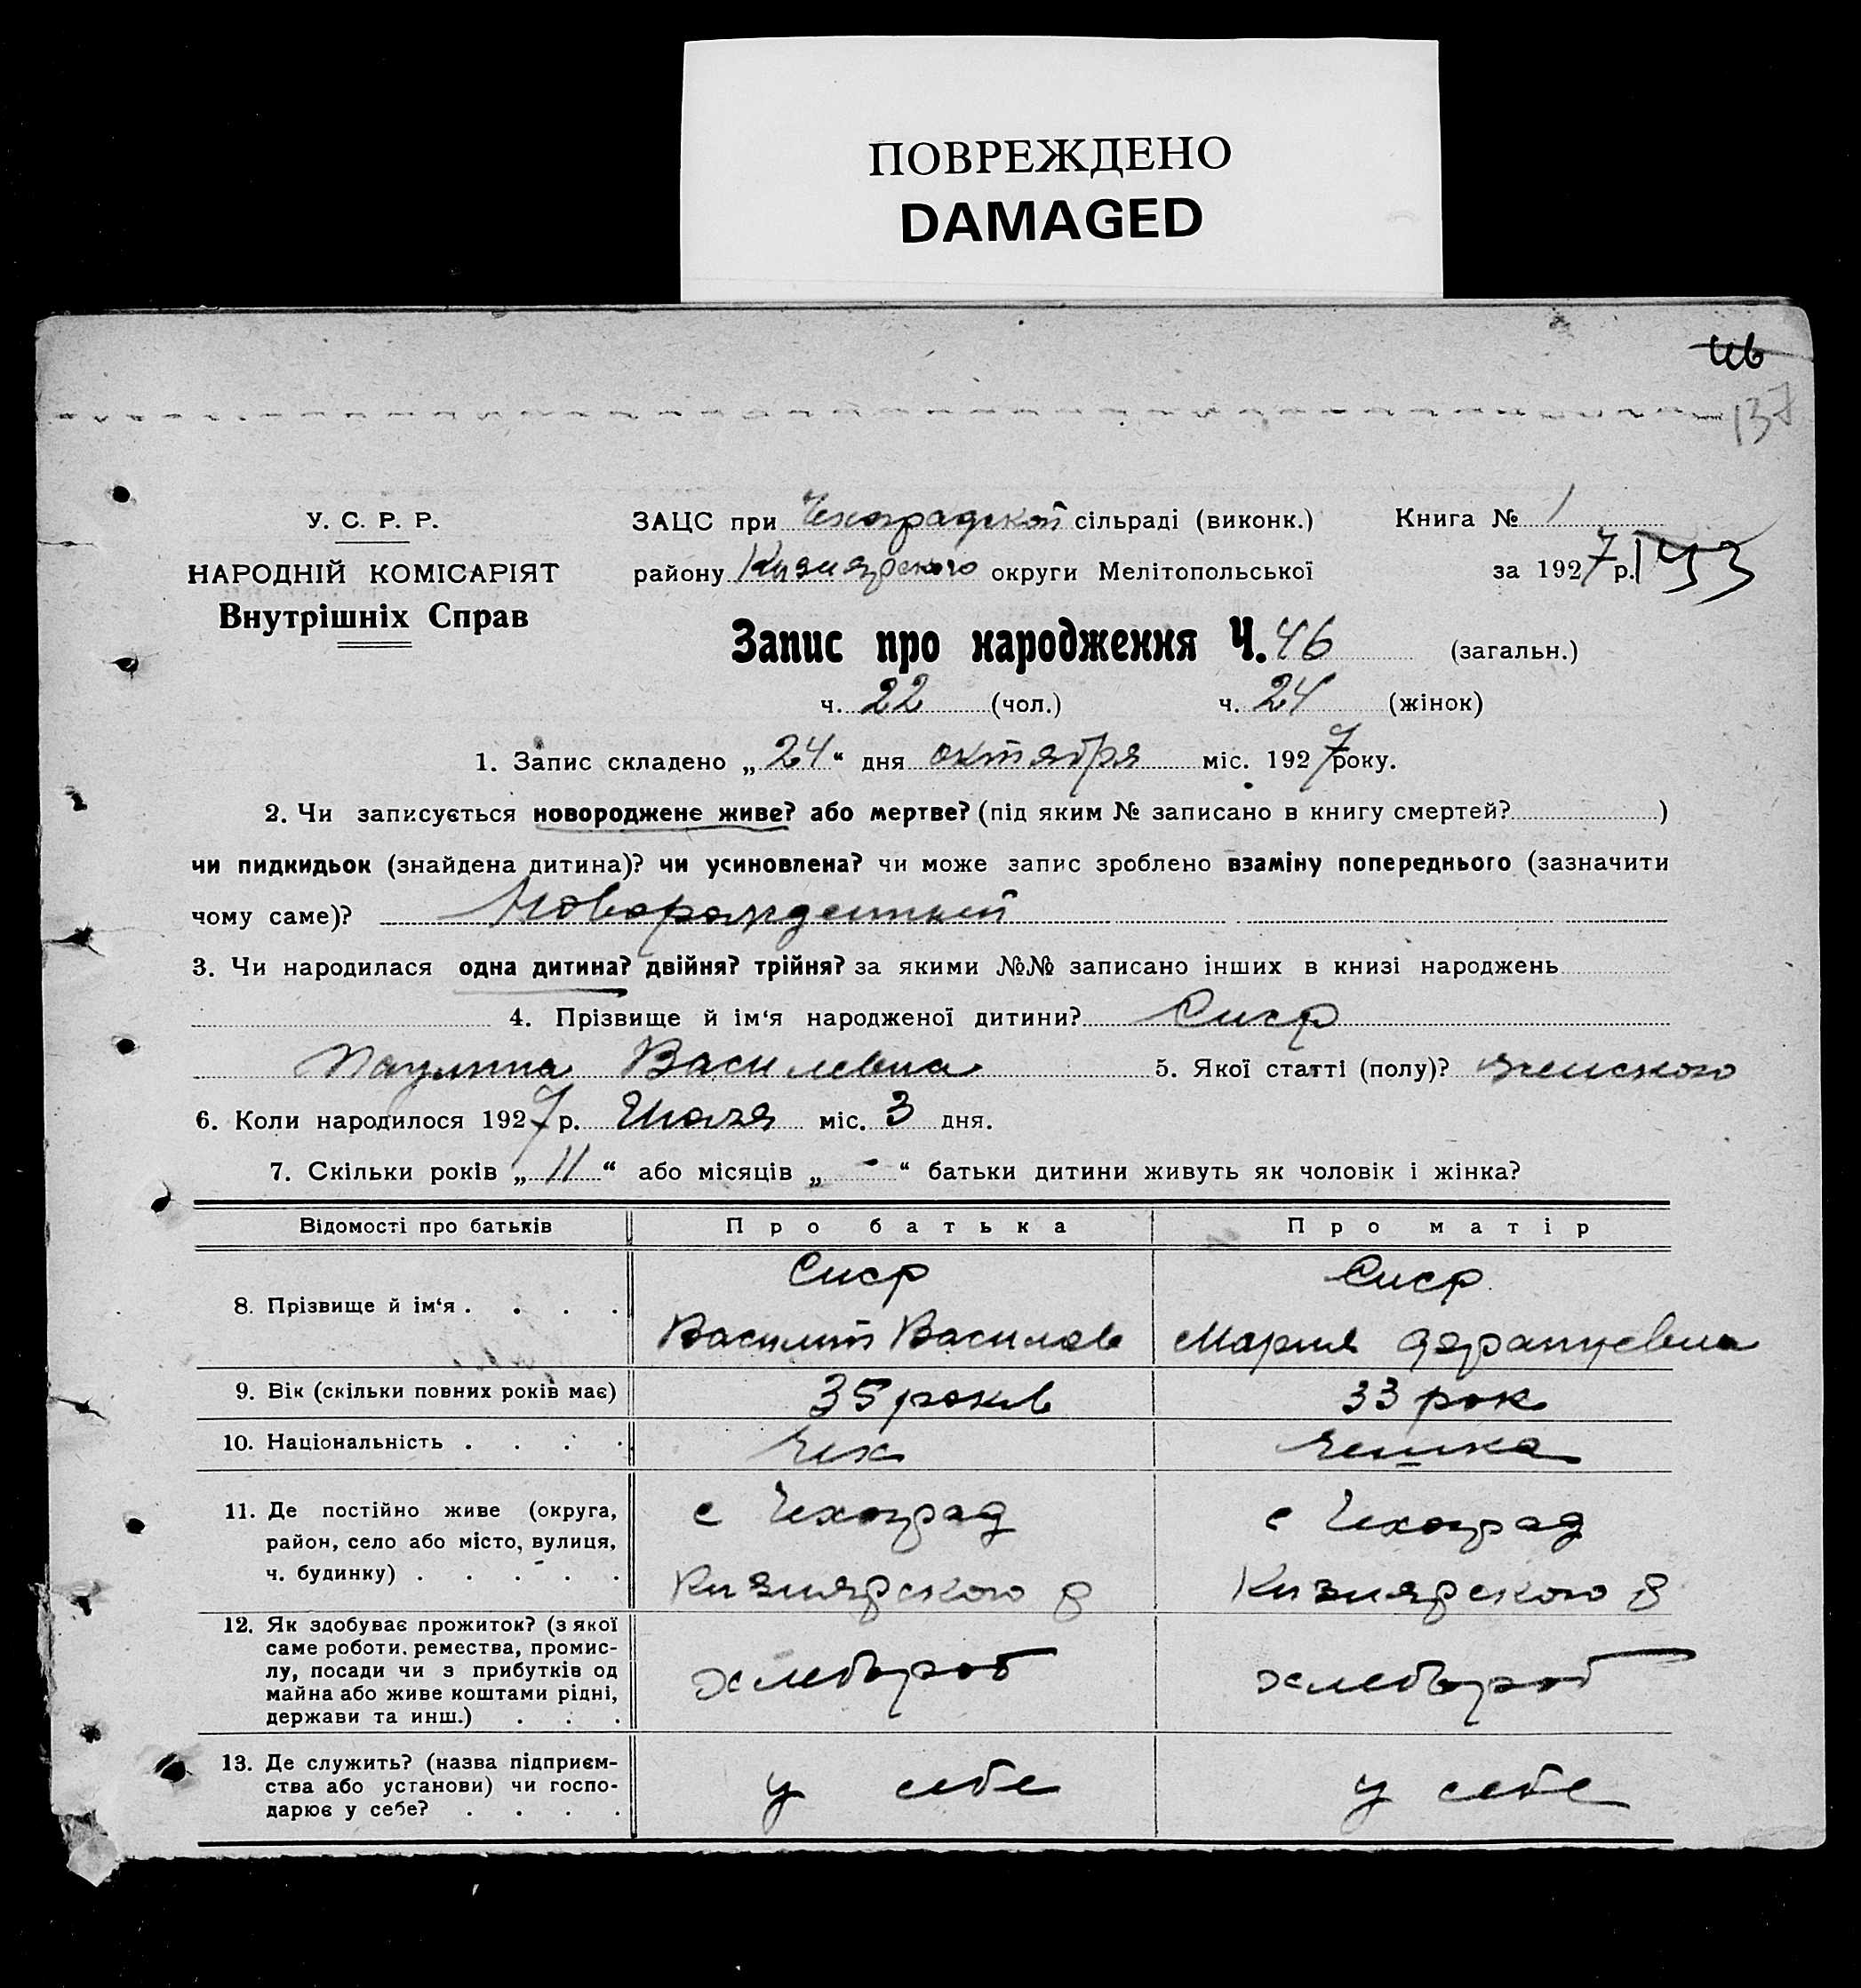 ПОВРЕЖДЕНО
DAMAGED
46
137
У. С. Р. Р.
НАРОДНІЙ КОМІСАРІЯТ
Внутрішніх Справ
ЗАЦС при Чехоградской сільраді (виконк.) Книга № 1
району Кизиярского округи Мелітопольської за 1927 р. 143
Запис про народження Ч. 46 (загальн.)
ч. 22 (чол.) ч. 24 (жінок)
1. Запис складено „24“ дня октября міс. 1927 року.
2. Чи записується новороджене живе? або мертве? (під яким № записано в книгу смертей? )
чи пидкидьок (знайдена дитина)? чи усиновлена? чи може запис зроблено взаміну попереднього (зазначити
чому саме)? Новорожденный
3. Чи народилася одна дитина? двійня? трійня? за якими №№ записано інших в книзі народжень
4. Прізвище й ім‘я народженої дитини? Сиср
Паулина Василевна 5. Якої статті (полу)? женского
6. Коли народилося 1927 р. Июля міс. 3 дня.
7. Скільки років „11“ або місяців „-“ батьки дитини живуть як чоловік і жінка?
Відомості про батьків Про батька Про матір
8. Прізвище й ім‘я . . . .
Сиср
Василий Василев
Сиср
Мария
9. Вік (скільки повних років має) 35 років 33 рок
10. Національність . . . . Чех Чешка
11. Де постійно живе (округа,
район, село або місто, вулиця,
ч. будинку) . . . . .
с Чехоград
Кизиярского р
с Чехоград
Кизиярского р
12. Як здобуває прожиток? (з якої
саме роботи, ремества, промис-
лу, посади чи з прибутків од
майна або живе коштами рідні,
держави та инш.) . . .
хлебороб
хлебороб
13. Де служить? (назва підприєм-
ства або установи) чи госпо-
дарює у себе? . . . .
у себе
у себе